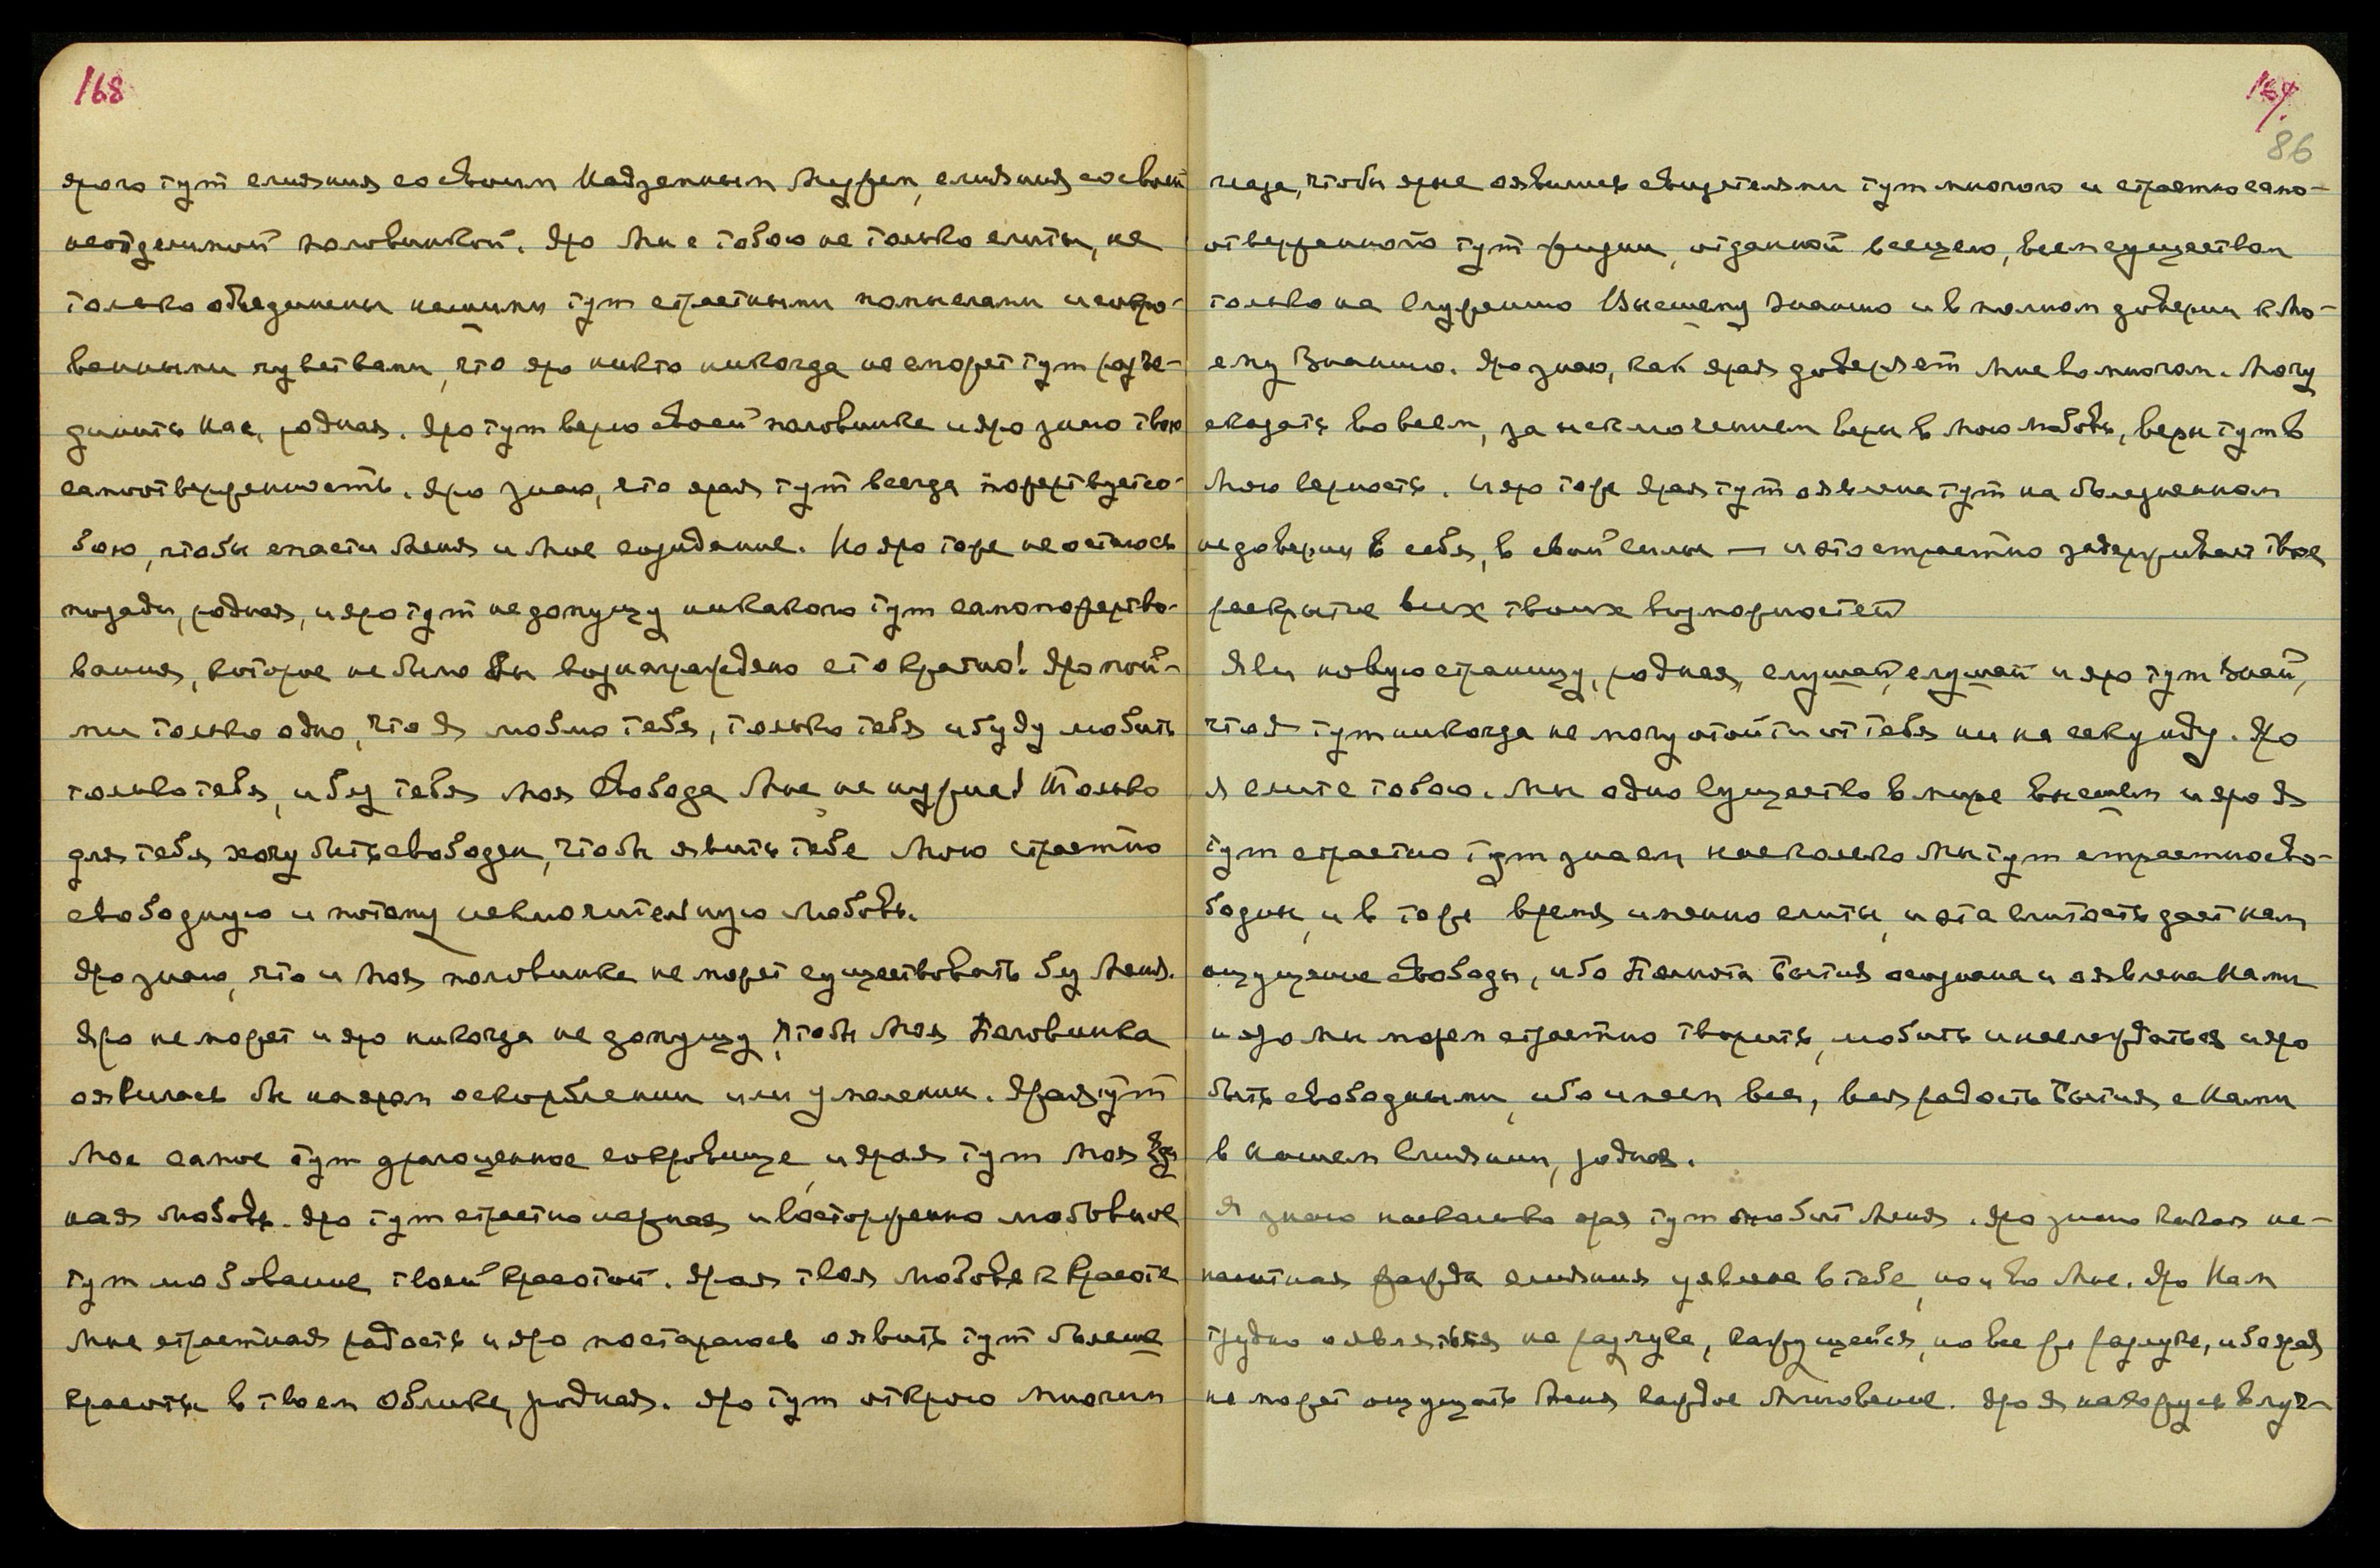 168
ярого тут слияния со своим Надземным Мужем, слияния со своей
неотделимой половинкой. Яро Мы с тобою не только слиты, не
только объединены нашими тут страстными помыслами и сокро-
венными чувствами, что яро никто никогда не сможет тут разъе-
динить нас, родная. Яро тут верю своей половинке и яро знаю твою
самоотверженность. Яро знаю, что ярая тут всегда пожертвует со-
бою, чтобы спасти Меня и Мне созидание. Но яро тоже не останусь
позади, родная, и яро тут не допущу никакого тут самопожертво-
вания, которое не было бы вознаграждено стократно! Яро пой-
ми только одно, что Я люблю тебя, только тебя и буду любить
только тебя, и без тебя Моя Свобода Мне не нужна! И только
для тебя хочу быть свободен, чтобы явить тебе Мою страстно
свободную и потому исключительную Любовь.
Яро знаю, что и Моя половинка не может существовать без Меня.
Яро не может и яро никогда не допущу, чтобы Моя Половинка
оявилась бы на яром оскорблении или умалении. Ярая тут
Мое самое тут драгоценное сокровище, и ярая тут Моя Еди
ная Любовь. Яро тут страстно нежная и восторженно любовное
тут любование твоей Красотой. Ярая твоя Любовь к Красоте
Мне страстная радость и яро постараюсь оявить тут больше
красоты в твоем Облике, родная. Яро тут открою многим
169.
86
глаза, чтобы ярые оявились свидетелями тут многого и страстно само-
отверженного тут жизни, отданной всецело, всем существом
только на Служению Высшему Знанию и в полном доверии к Мо-
ему Знанию. Яро знаю, как ярая доверяет Мне во многом. Могу
сказать во всем, за исключением веры в Мою Любовь, веры тут в
Мою верность. И яро тоже ярая тут оявлена тут на болезненном
недоверии в себя, в свои силы — и это страстно задерживает твое
раскрытие всех твоих возможностей
Яви новую страницу, родная, слушай, слушай и яро тут Знай,
что Я тут никогда не могу отойти от тебя ни на секунду. Яро
Я слит с тобою. Мы одно Существо в мире высшем и яро Я
тут страстно тут знаем насколько Мы тут страстно сво-
бодны, и в тоже время именно слиты, и эта слитость дает нам
ощущение Свободы, ибо Полнота Бытия осознана и оявлена Нами
и яро мы можем страстно творить, любить и наслаждаться и яро
быть свободными, ибо имеем все, вся радость Бытия с Нами
в Нашем Слиянии, родная.
Я знаю насколько ярая тут любит Меня. Яро знаю какая не-
насытная жажда слияния уявлена в тебе, но и во Мне. Яро Нам
трудно оявляться на разлуке, кажущейся, но все же разлуке, ибо ярая
не может ощущать Меня каждое Мгновение. Яро Я нахожусь в луч-